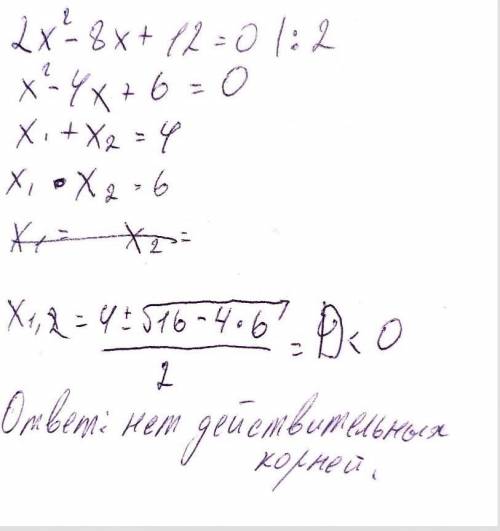 2x² - 8x + 12 = 0 |: 2
x² - 4x + 6 = 0
x₁ + x₂ = 4
x₁ • x₂ = 6
x₁ = x₂ =
x₁,₂ = (4 ± √16 - 4•6) / 2 = D < 0
Ответ: нет действительных
корней.